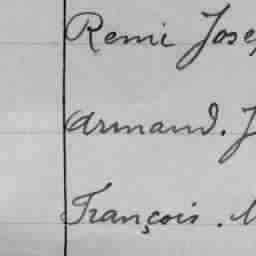 Remi Jose
Armand. J
François. M